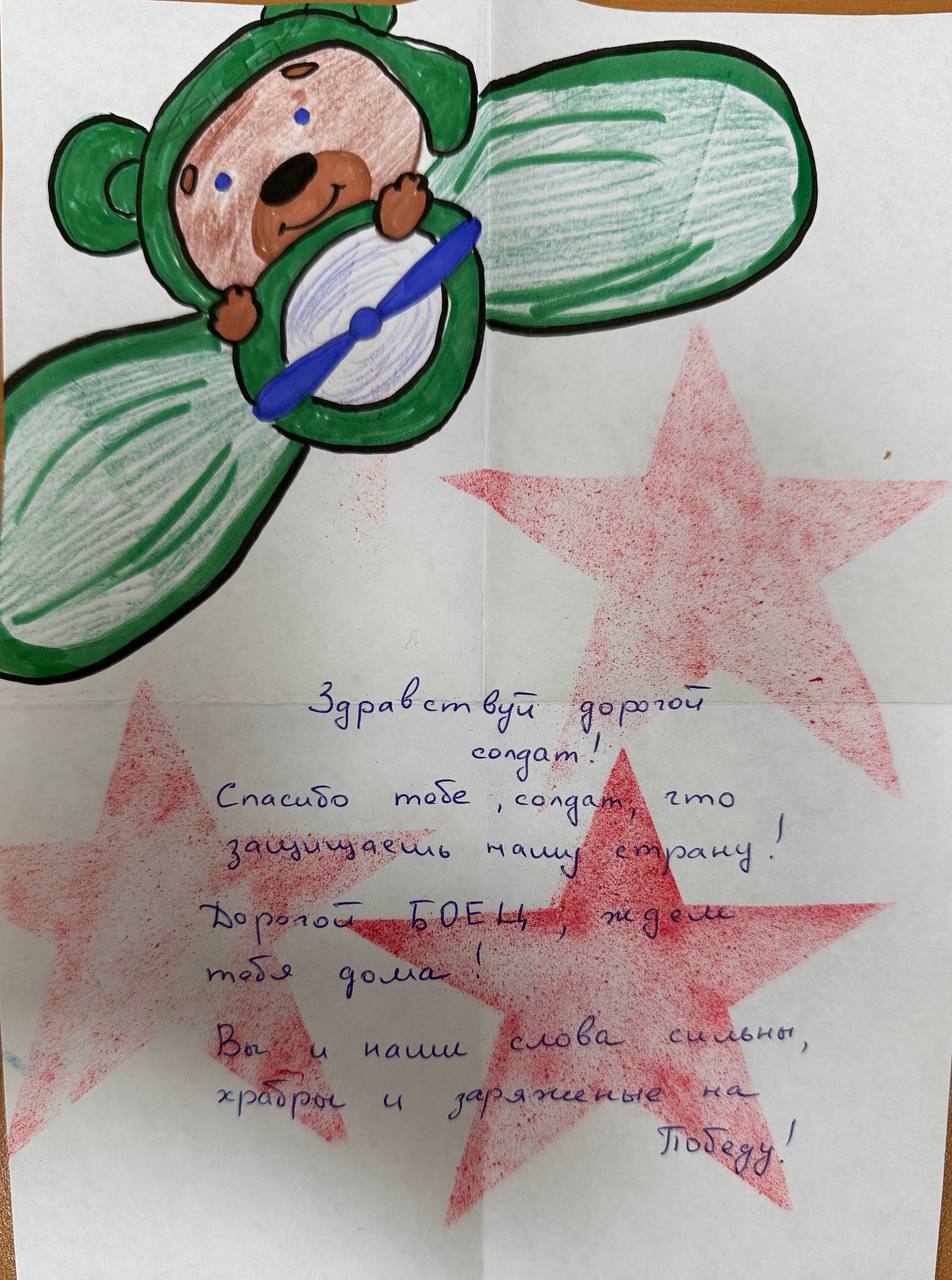 Здравствуй дорогой
солдат!
Спасибо тебе, солдат, что
защищаешь нашу страну!
Дорогой БОЕЦ, ждем
тебя дома!
Вы и наши слова сильны,
храбры и заряженые на
Победу!